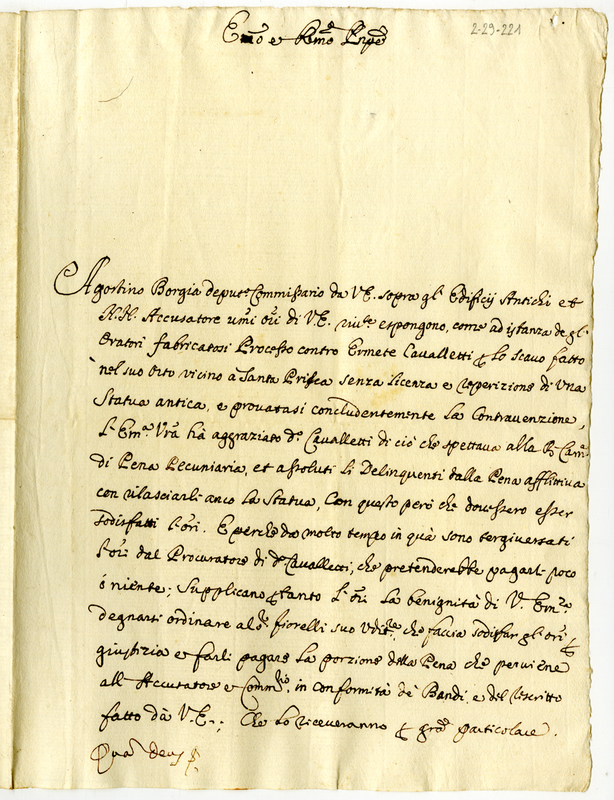 2-29-221
Em̃o e Rm̃o Prñpe
Agostino Borgia deput.º Commissario da V.E. sopra gl' Edificij Antichi et
N.N. Accusatore um̃i Ori di V.E. riv.te espongono, come ad istanza de gl'
Oratori fabricatosi Processo contro Ermete Cavalletti p lo scavo fatto
nel suo Orto vicino à Santa Prisca senza licenza e reperizione di Una
Statua antica, e provatasi concludentemente la Contravenzione,
L'Em.ª Vrã hà aggraziato d.º Cavalletti di ciò che spettava alla R. Cam.
di Pena Pecuniaria, et assoluti li Delinquenti dalla Pena afflittiva
con rilasciarli anco la Statua, Con questo però che dovessero esser
sodisfatti l'ori. E perche da molto tempo in quà sono tergiversati
l'ori dal Procuratore di d.º Cavalletti, che pretenderebbe pagarli poco
ò niente; Supplicano p tanto l'ori la benignità di V. Em.ª
degnarsi ordinare al S.r fiorelli suo Udit.re, che faccia sodisfar gl'ori p
giustizia et farli pagare la porzione della Pena che perviene
all'Accusatore e Comm.rio, in conformità de' Bandi, e del rescritto
fatto dà V.E.; Che lo riceveranno p gra particolare.
Quam Deus